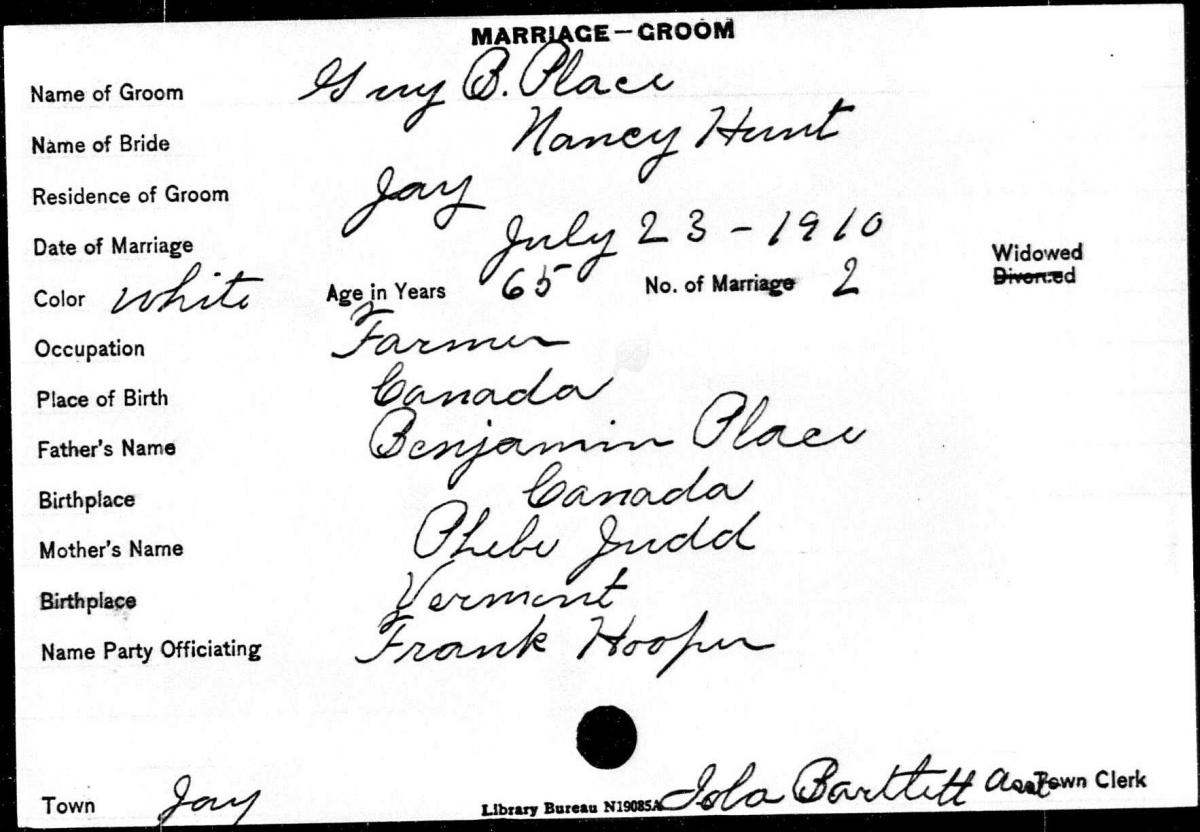 MARRIAGE—GROOM
Name of Groom Guy B. Place
Name of Bride Nancy Hunt
Residence of Groom Jay
Date of Marriage July 23 - 1910
Widowed
Color White Age in Years 65 No. of Marriage 2 Divorced
Occupation Farmer
Place of Birth Canada
Father's Name Benjamin Place
Birthplace Canada
Mother's Name Phebe Judd
Birthplace Vermont
Name Party Officiating Frank Hooper
Town Jay Library Bureau N19085A Iola Bartlett Asst Town Clerk